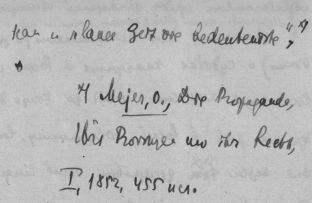 kan u nlauer Zeit die bedeutendste",*)
*) Mejer, O., Die Propaganda,
Ihre Provinzen und ihr Recht,
I, 1852, 455 исл.